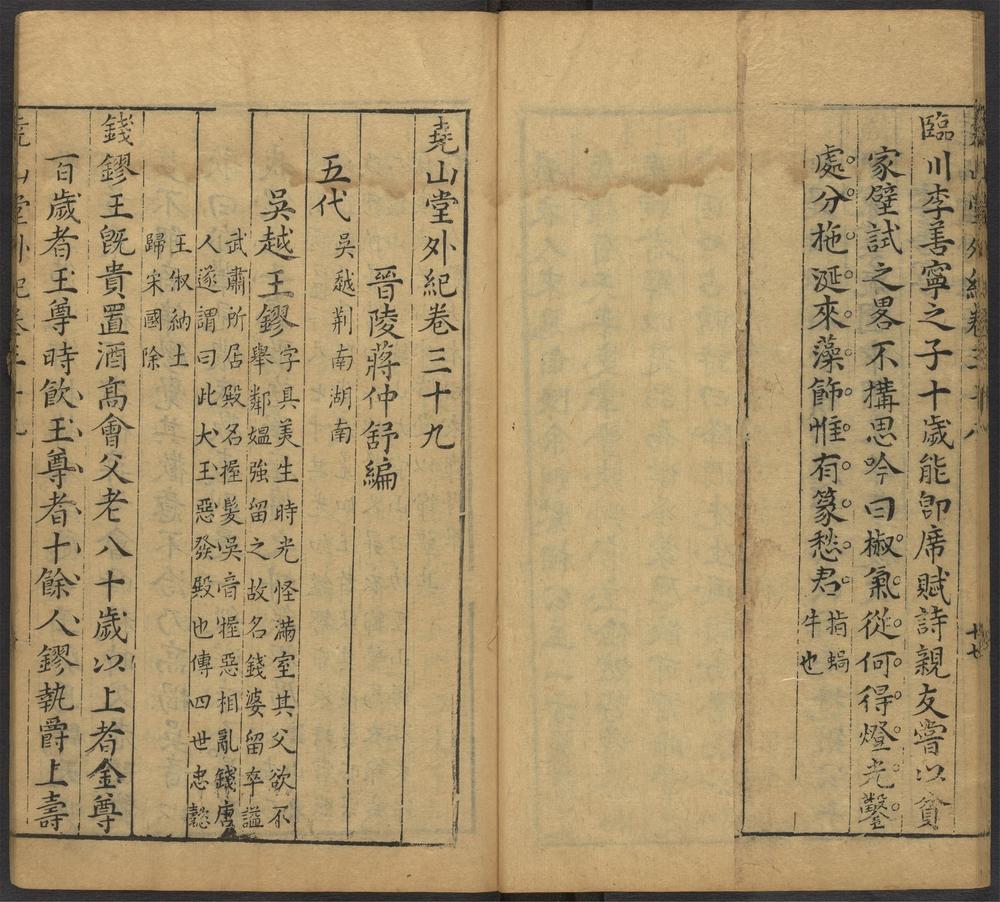 臨川李善寧之子十歲能即席賦詩親友嘗以貧
家壁試之畧不搆思吟曰椒氣從何得燈光鑿
處分拖涎來藻飾惟有篆愁君指蝸
牛也
堯山堂外紀卷三十九
晉陵蔣仲舒編
五代吳越荆南湖南
吳越王鏐字具美生時光怪滿室其父欲不
舉鄰媼強留之故名錢婆留卒謚
武肅所居殿名握髮吳音握惡相亂錢唐
人遂謂曰此犬王惡發殿也傳四世忠懿
王俶納土
歸宋國除
錢鏐王旣貴置酒高會父老八十歲以上者金尊
百歲者玉尊時飲玉尊者十餘人鏐執爵上壽
堯山堂外紀卷三十九